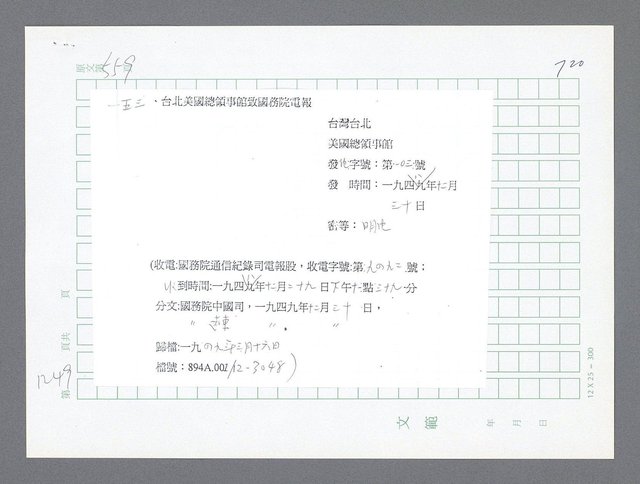 559
720
一五三、台北美國總領事館致國務院電報
台灣台北
美國總領事館
發電字號：第一〇三號
發　時間：一九四八年十二月
三十日
密等：明電
(收電:國務院通信紀錄司電報股，收電字號:第九四九二號：
收到時間:一九四八年十二月二十九日下午十點三十九分
分文:國務院中國司，一九四九年十二月三十日，
〃 遠東 〃 。 〃
歸檔:一九四九年三月十六日
檔號：894A.00/12-3048)
1249
第
頁共
頁
文範
年 月 日
12 X 25 = 300